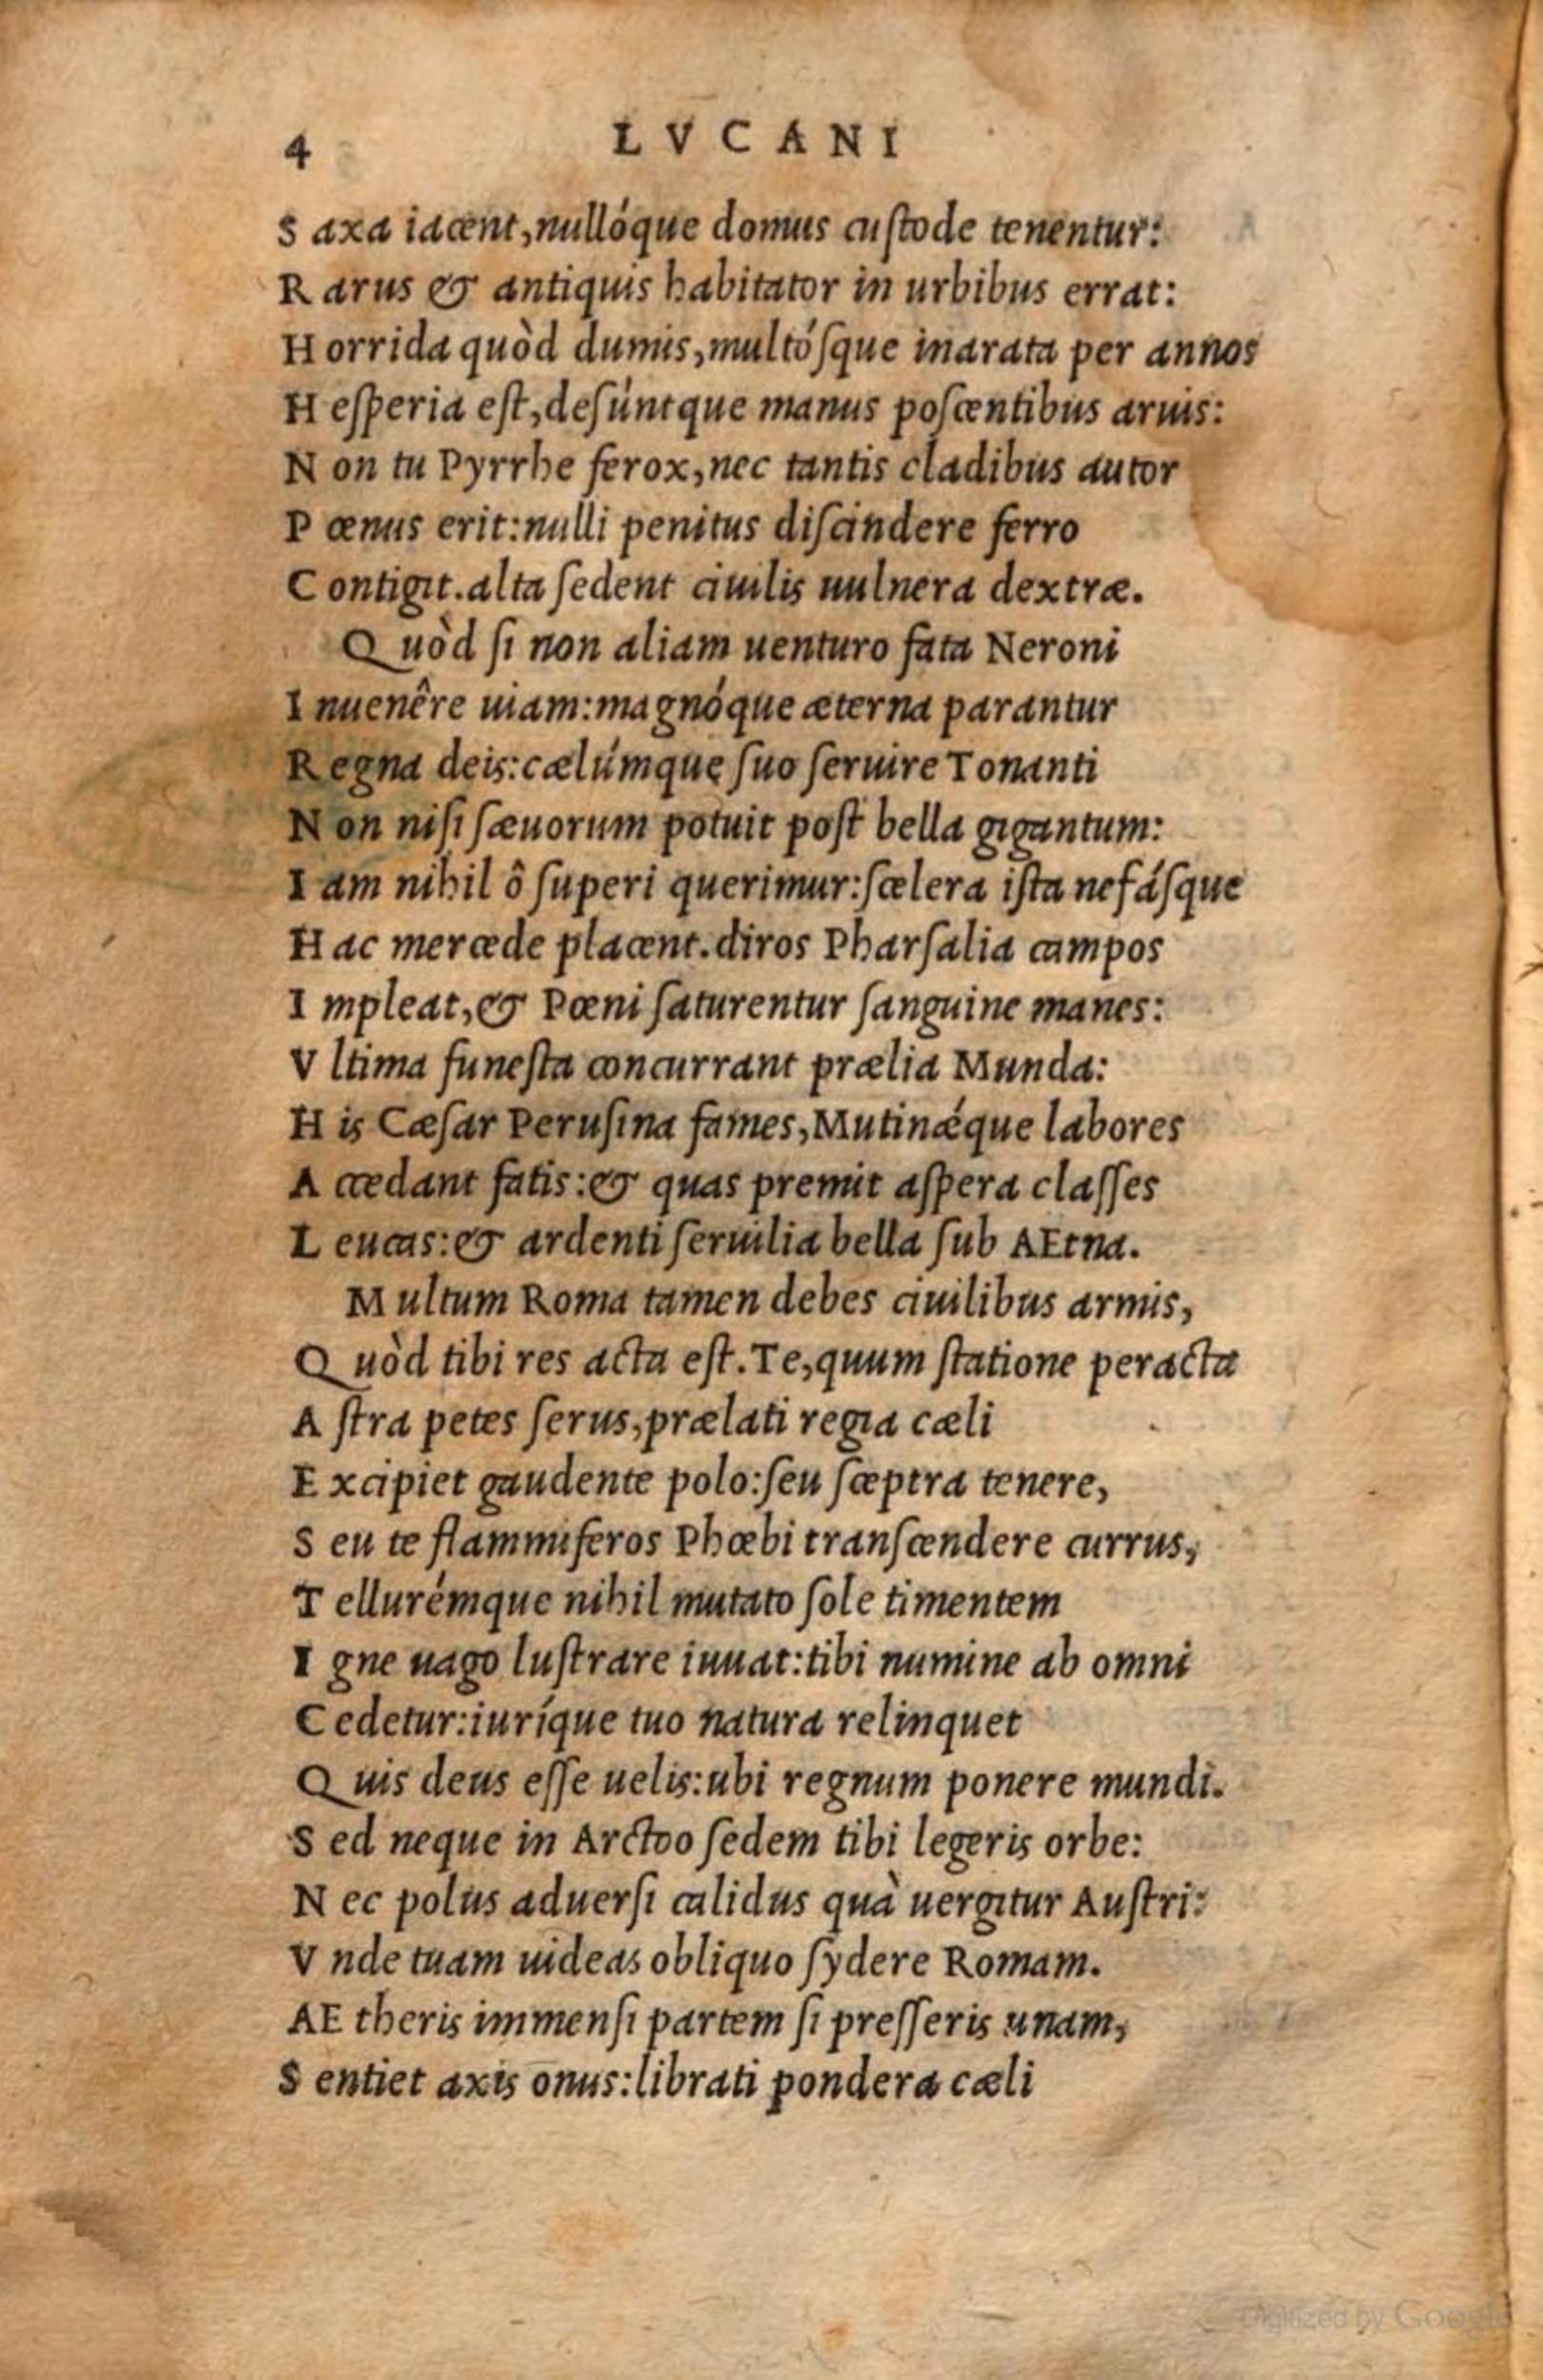 4 LVCANI
S axa iacent,nullóque domus cuſtode tenentur:
R arus & antiquis habitator in urbibus errat:
H orrida quòd dumis,multóſque inarata per annos
H eſperia eſt,deſúntque manus poſcentibus aruis:
N on tu Pyrrhe ferox,nec tantis cladibus autor
P œnus erit:nulli penitus diſcindere ferro
C ontigit.alta ſedent ciuilis uulnera dextræ.
Q uòd ſi non aliam uenturo fata Neroni
I nuenêre uiam:magnóque æterna parantur
R egna deis:cælúmque ſuo ſeruire Tonanti
N on niſi ſæuorum potuit poſt bella gigantum:
I am nihil ô ſuperi querimur:ſcelera iſta nefáſque
H ac mercede placent.diros Pharſalia campos
I mpleat,& Pœni ſaturentur ſanguine manes:
V ltima funeſta concurrant prælia Munda:
H is Cæſar Peruſina fames,Mutinǽque labores
A ccedant fatis:& quas premit aſpera claſſes
L eucas:& ardenti ſeruilia bella ſub AEtna.
M ultum Roma tamen debes ciuilibus armis,
Q uòd tibi res acta eſt.Te,quum ſtatione peracta
A ſtra petes ſerus,prælati regia cæli
E xcipiet gaudente polo:ſeu ſceptra tenere,
S eu te flammiferos Phœbi tranſcendere currus,
T ellurémque nihil mutato ſole timentem
I gne uago luſtrare iuuat:tibi numine ab omni
C edetur:iuríque tuo natura relinquet
Q uis deus eſſe uelis:ubi regnum ponere mundi.
S ed neque in Arctoo ſedem tibi legeris orbe:
N ec polus aduerſi calidus quà uergitur Auſtri:
V nde tuam uideas obliquo ſydere Romam.
AE theris immenſi partem ſi preſſeris unam,
S entiet axis onus:librati pondera cæli
Digitized by Google